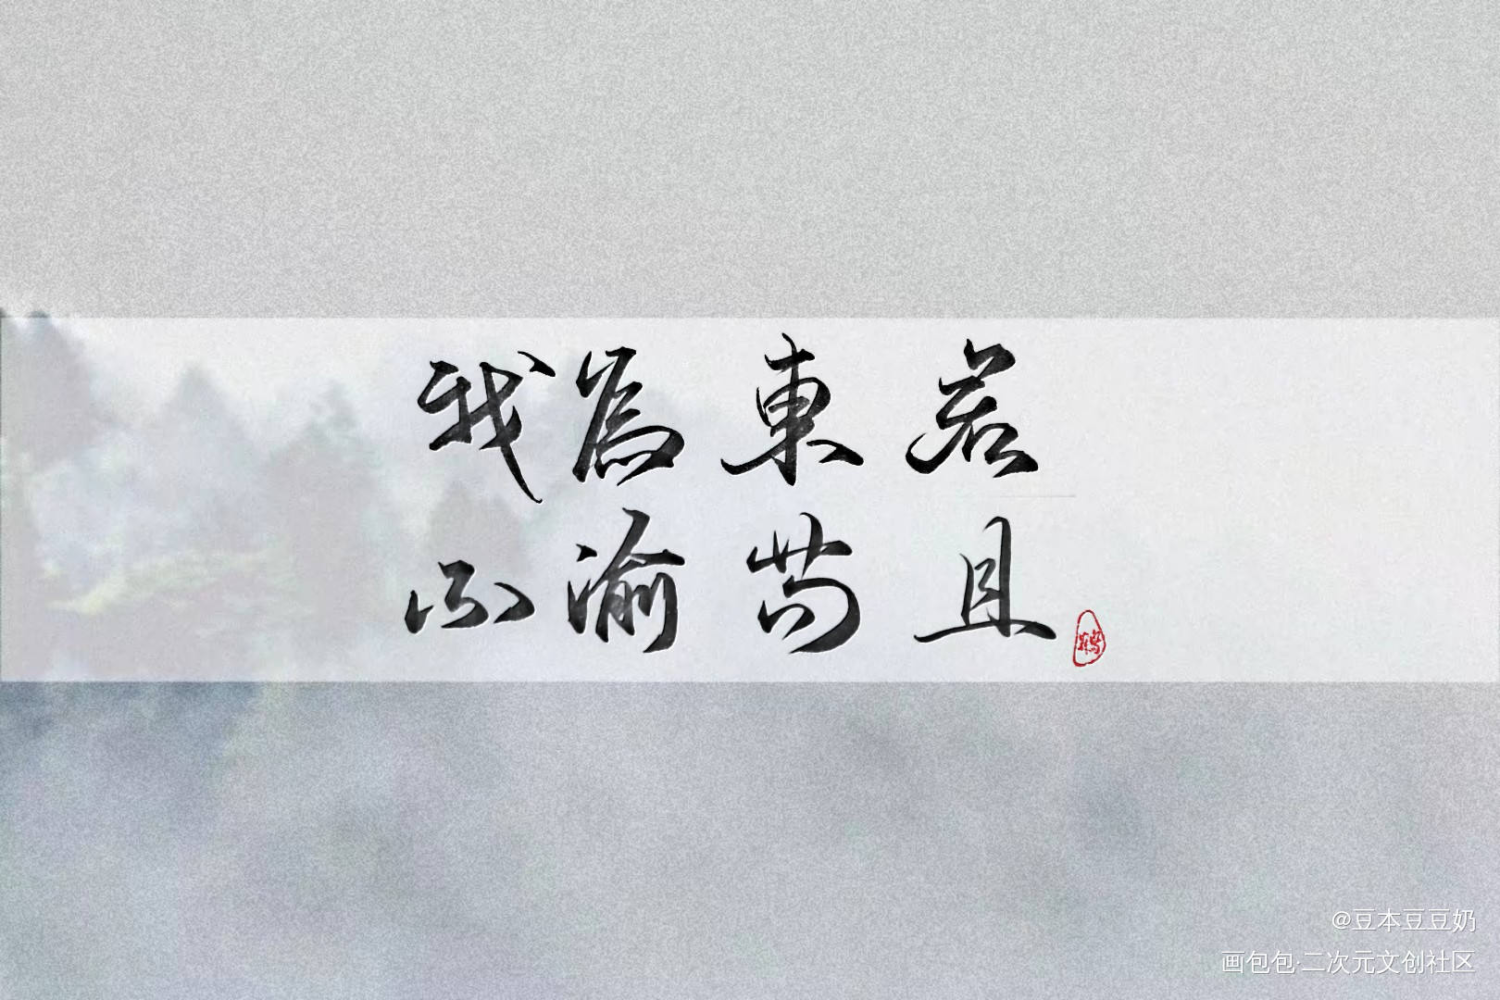 我為東若
不渝苟且
@豆本豆豆奶
画包包·二次元文创社区